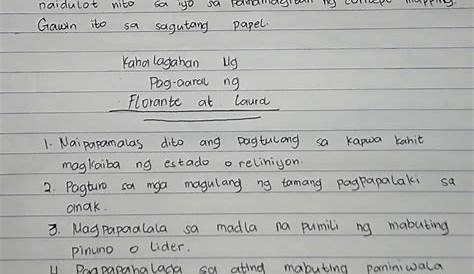 naidulot nito sa iyo sa pamamagitan ng concept mapping.
Gawin ito sa sagutang papel.
Kahalagahan Ng
Pag-aaral ng
Florante at Laura
1. Naipapamalas dito ang pagtulong sa kapwa kahit
magkaiba ng estado o relihiyon.
2. Pagturo sa mga magulang ng tamang pagpapalaki sa
anak.
3. Magpapaalala sa madla na pumili ng mabuting
pinuno o lider.
4. Pagpapahalaga sa ating mabuting paniniwala